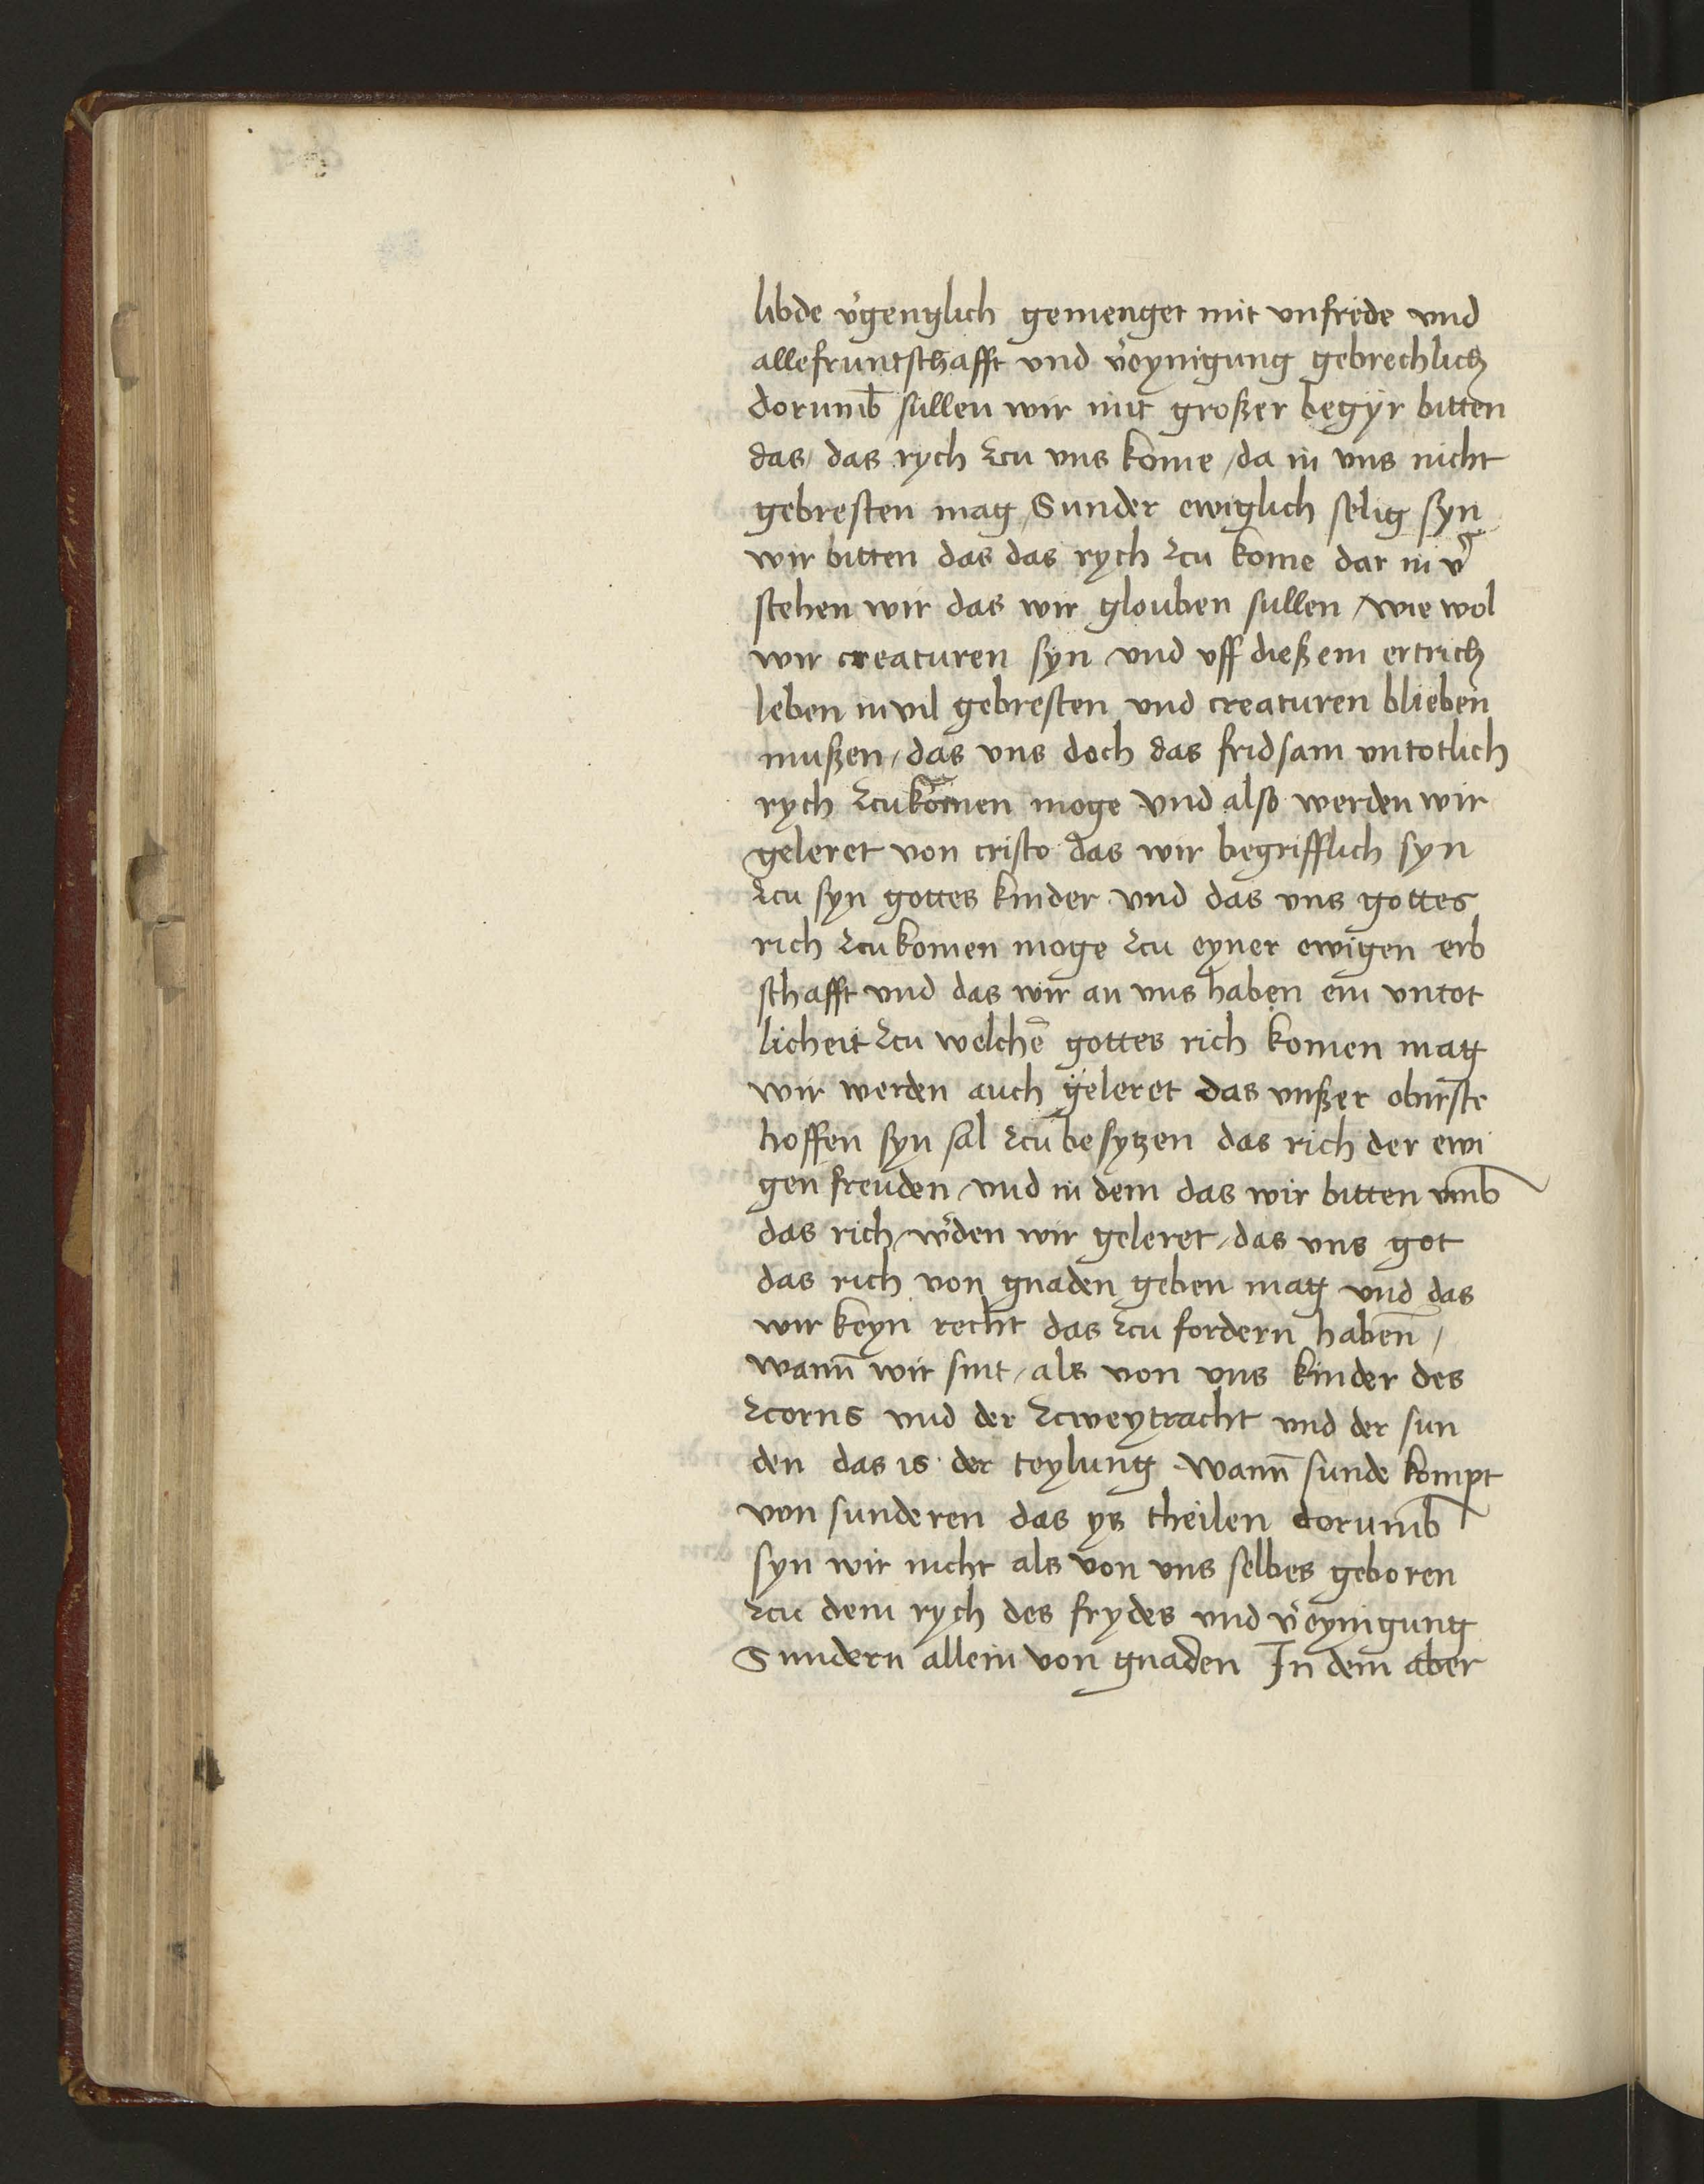 libde v̓genglich gemenget mit vnfrede vnd
allefruntschafft vnd v̓eynigung gebrechlich
dorumb̄ sullen wir mit großer begyr bitten
das / das rych zcu vns kome / da in vns nicht
gebresten mag / Sunder ewiglich selig syn
wir bitten das das rych zcu kome dar in v̓
stehen wir das wir glouben sullen / wie wol
wir creaturen syn vnd vff dießem ertrich
leben in vil gebresten vnd creaturen blieben
mußen / das vns doch das fridsam vntotlich
rych zcukom̄en moge vnd also werden wir
geleret von cristo das wir begrifflich syn
zcu syn gottes kinder vnd das vns gottes
rich zcukomen moge zcu eyner ewigen erb
schafft vnd das wir an vns haben ein vntot
licheit zcu welchē gottes rich komen mag
wir werden auch geleret das vnßer oburste
hoffen syn sal zcu besytzen das rich der ewi
gen freuden / vnd in dem das wir bitten vmb
das rich / w̓den wir geleret / das vns got
das rich von gnaden geben mag vnd das
wir keyn recht das zcu fordern haben̄ /
wann̄ wir sint / als von vns kinder des
zcorns vnd der zcweytracht vnd der sun
den das is der teylung wann̄ sunde kompt
von sunderen das ys theilen dorumb̄
syn wir nicht als von vns selbes geboren
zcu dem rych des frydes vnd v̓eynigung
Sundern allein von gnaden In dem aber